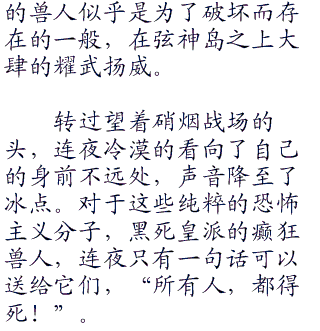 的兽人似乎是为了破坏而存
在的一般，在弦神岛之上大
肆的耀武扬威。
转过望着硝烟战场的
头，连夜冷漠的看向了自己
的身前不远处，声音降至了
冰点。对于这些纯粹的恐怖
主义分子，黑死皇派的癫狂
兽人，连夜只有一句话可以
送给它们，“所有人，都得
死！”。